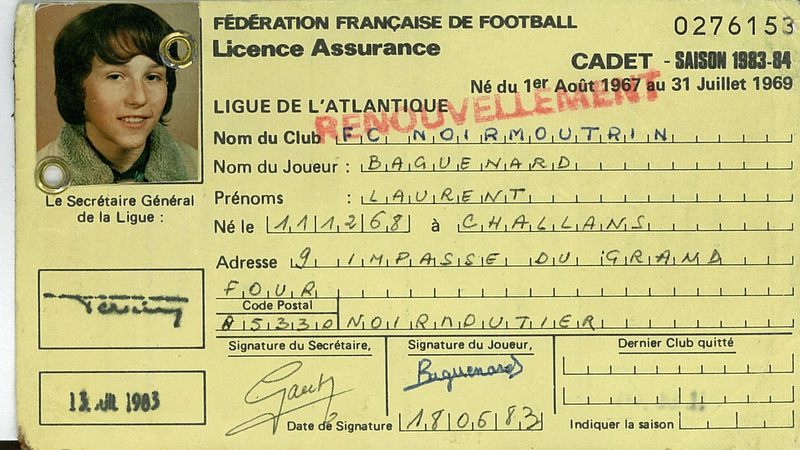 FÉDÉRATION FRANÇAISE DE FOOTBALL
0276153
Licence Assurance
CADET - SAISON 1983-84
Né du 1er Août 1967 au 31 Juillet 1969
LIGUE DE L'ATLANTIQUE
RENOUVELLEMENT
Nom du Club FC NOIRMOUTRIN
Nom du Joueur : BAGUENARD
Le Secrétaire Général
de la Ligue :
Prénoms : LAURENT
Né le 111268 à CHALLANS
Adresse 9 IMPASSE DU GRAND
FOUR
Code Postal
85330 NOIRMOUTIER
Signature du Secrétaire,
Signature du Joueur,
Dernier Club quitté
Baguenard
13 JUIL 1983
Date de Signature 180683
Indiquer la saison